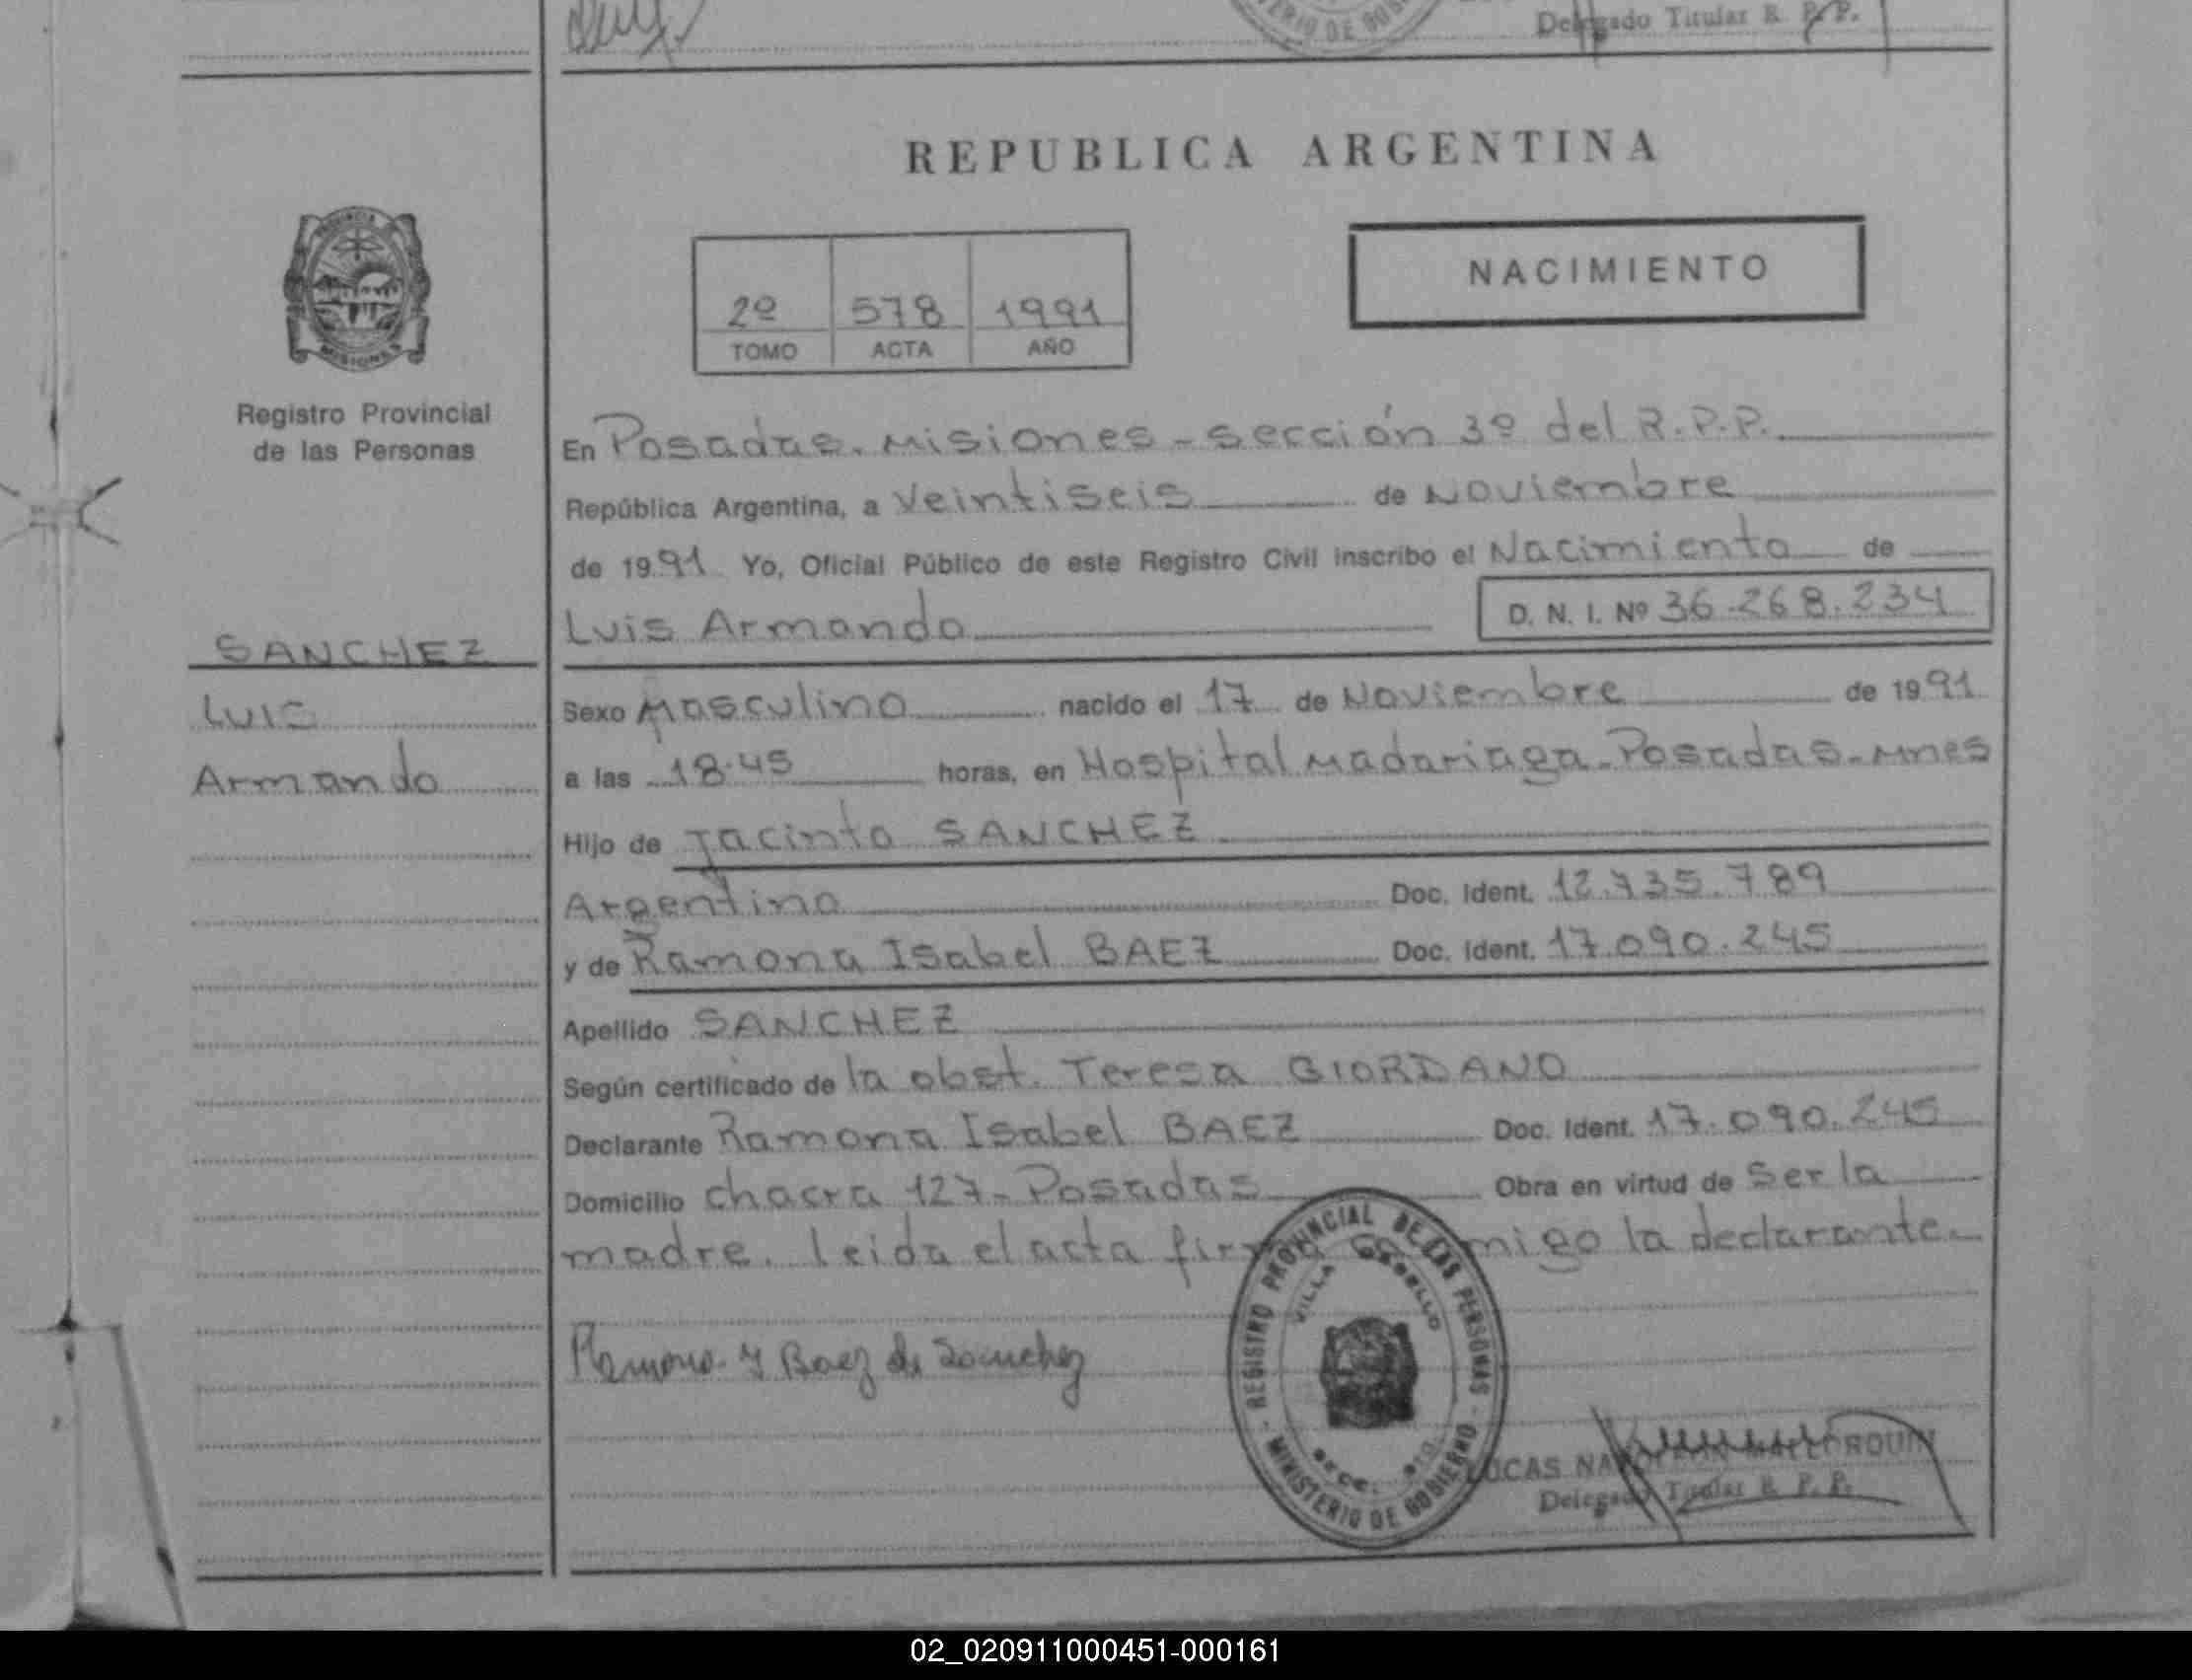 Delegado Titular R. P. P.
MINISTERIO DE GOB
REPUBLICA ARGENTINA
PROVINCIA
MISIONES
Registro Provincial
de las Personas
2º 578 1991
TOMO ACTA AÑO
NACIMIENTO
En Posadas. Misiones - sección 3º del R.P.P.
República Argentina, a Veintiseis de Noviembre
de 1991 Yo, Oficial Público de este Registro Civil inscribo el Nacimiento de
Luis Armando D. N. I. Nº 36.268.234
SANCHEZ
LUIS
Armando
Sexo Masculino nacido el 17 de Noviembre de 1991
a las 18.45 horas, en Hospital Madariaga. Posadas. Mnes
Hijo de Jacinto SANCHEZ
Argentino Doc. Ident. 12.735.789
y de Ramona Isabel BAEZ Doc. Ident. 17.090.245
Apellido SANCHEZ
Según certificado de la obst. Teresa GIORDANO
Declarante Ramona Isabel BAEZ Doc. Ident. 17.090.245
Domicilio chacra 127 - Posadas Obra en virtud de ser la
madre. leida el acta firma conmigo la declarante.
Ramona Y Baez de Sanchez
REGISTRO PROVINCIAL DE LAS PERSONAS
VILLA CABELLO
MINISTERIO DE GOBIERNO
LUCAS NAPOLEON MALLORQUIN
Delegado Titular R. P. P.
02_020911000451-000161